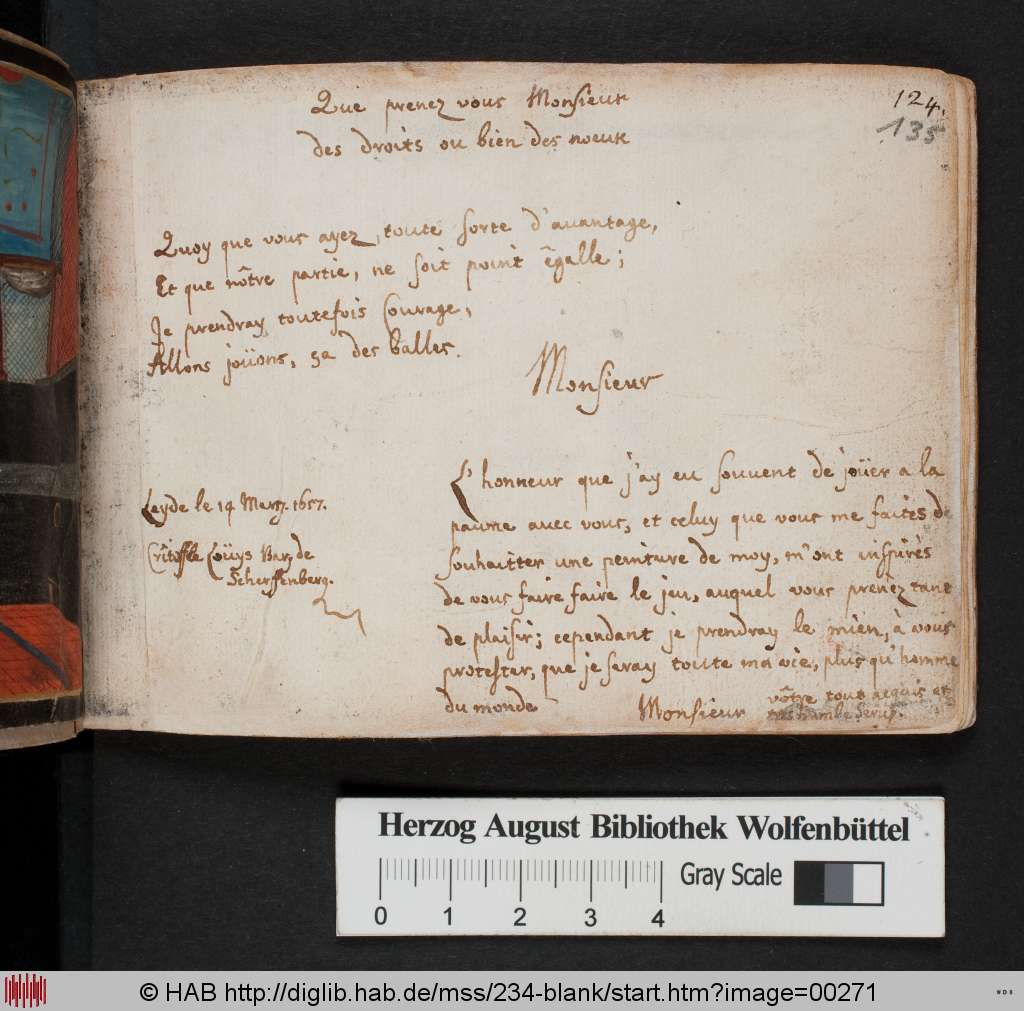 124.
135
Que prenez vous Monsieur
des droits ou bien des noeux
Quoy que vous ayez, toute sorte d'avantage,
Et que nôtre partie, ne soit point êgalle;
Je prendray toutefois Courage,
Allons joüons, sa des balles.
Monsieur
L'honneur que j'ay eu souvent de joüer a la
paume avec vous, et celuy que vous me faites de
souhaitter une peinture de moy, m'ont inspirés
de vous faire faire le jeu, auquel vous prenez tant
de plaisir; cependant je prendray le mien, à vous
protester, que je seray toute ma vie, plus qu'homme
du monde
Monsieur vôtre tout acquis et
tres humble
Leyde le 14 Mars. 1657.
Louys Bar. de
Scherffenberg.
Herzog August Bibliothek Wolfenbüttel
Gray Scale
0 1 2 3 4
© HAB http://diglib.hab.de/mss/234-blank/start.htm?image=00271